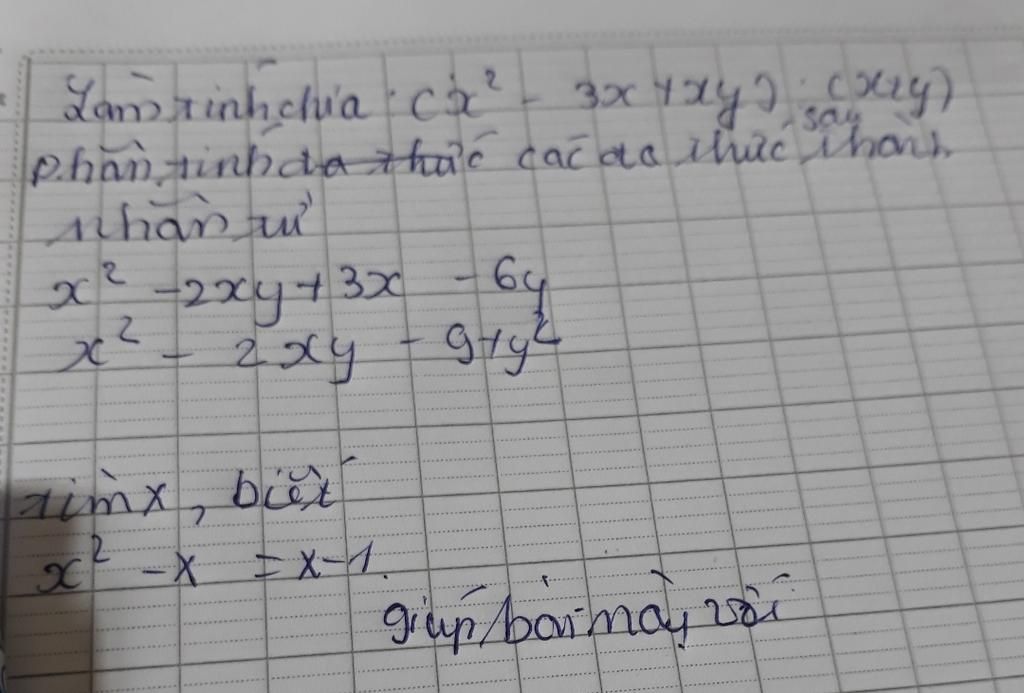 Làm tính chia: (x² - 3x + xy) : (x+y)
phân tích đa thức các đa thức sau thành
nhân tử
x² - 2xy + 3x - 6y
x² - 2xy - 9 + y²
tìm x, biết
x² - x = x - 1.
giúp bài này với